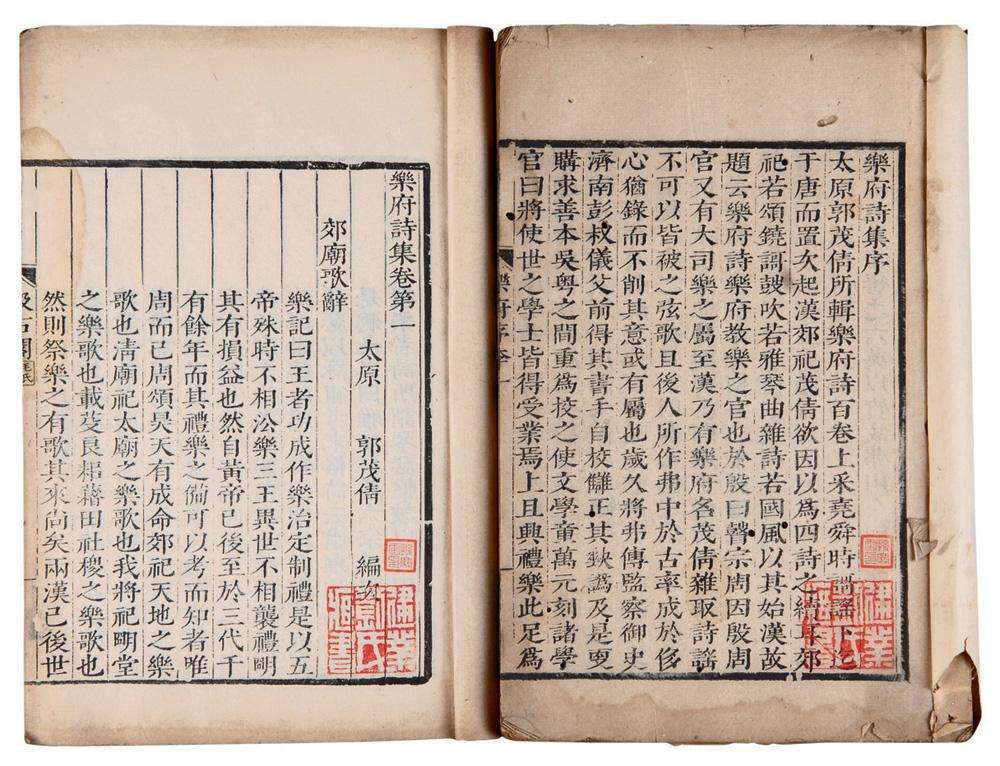 樂府詩集序
太原郭茂倩所輯樂府詩百卷上采堯舜時謌謡下迄
于唐而置次起漢郊祀茂倩欲因以爲四詩之續耳郊
祀若頌鐃謌鼓吹若雅琴曲雜詩若國風以其始漢故
題云樂府詩樂府敎樂之官也於殷曰瞽宗周因殷周
官又有大司樂之屬至漢乃有樂府名茂倩雜取詩謡
不可以皆被之弦歌且後人所作弗中於古率成於侈
心猶錄而不削其意或有屬也歲久將弗傳監察御史
濟南彭叔儀父前得其書手自校讎正其缺譌及是更
購求善本吳粤之間重爲校之使文學童萬元刻諸學
官曰將使世之學士皆得受業焉上且興禮樂此足爲
樂府序
樂府詩集卷第一
太原 郭茂倩 編次
郊廟歌辭
樂記曰王者功成作樂治定制禮是以五
帝殊時不相沿樂三王異世不相襲禮明
其有損益也然自黃帝已後至於三代千
有餘年而其禮樂之備可以考而知者唯
周而已周頌昊天有成命郊祀天地之樂
歌也淸廟祀太廟之樂歌也我將祀明堂
之樂歌也載芟良耜藉田社稷之樂歌也
然則祭樂之有歌其來尚矣兩漢已後世
汲古閣
毛氏